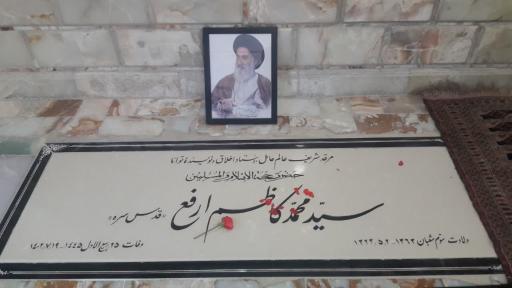 مرقد شریف عالم عامل، استاد اخلاق، نویسنده توانا
حضرت حجة الاسلام والمسلمین
سیّد محمّد کاظم ارفع «قدس سره»
ولادت سوّم شعبان ۱۳۶۳ـ ۱۳۲۳.۵.۲
وفات ۲۵ ربیع الاول ۱۴۴۵ـ ۱۴۰۲.۷.۱۹